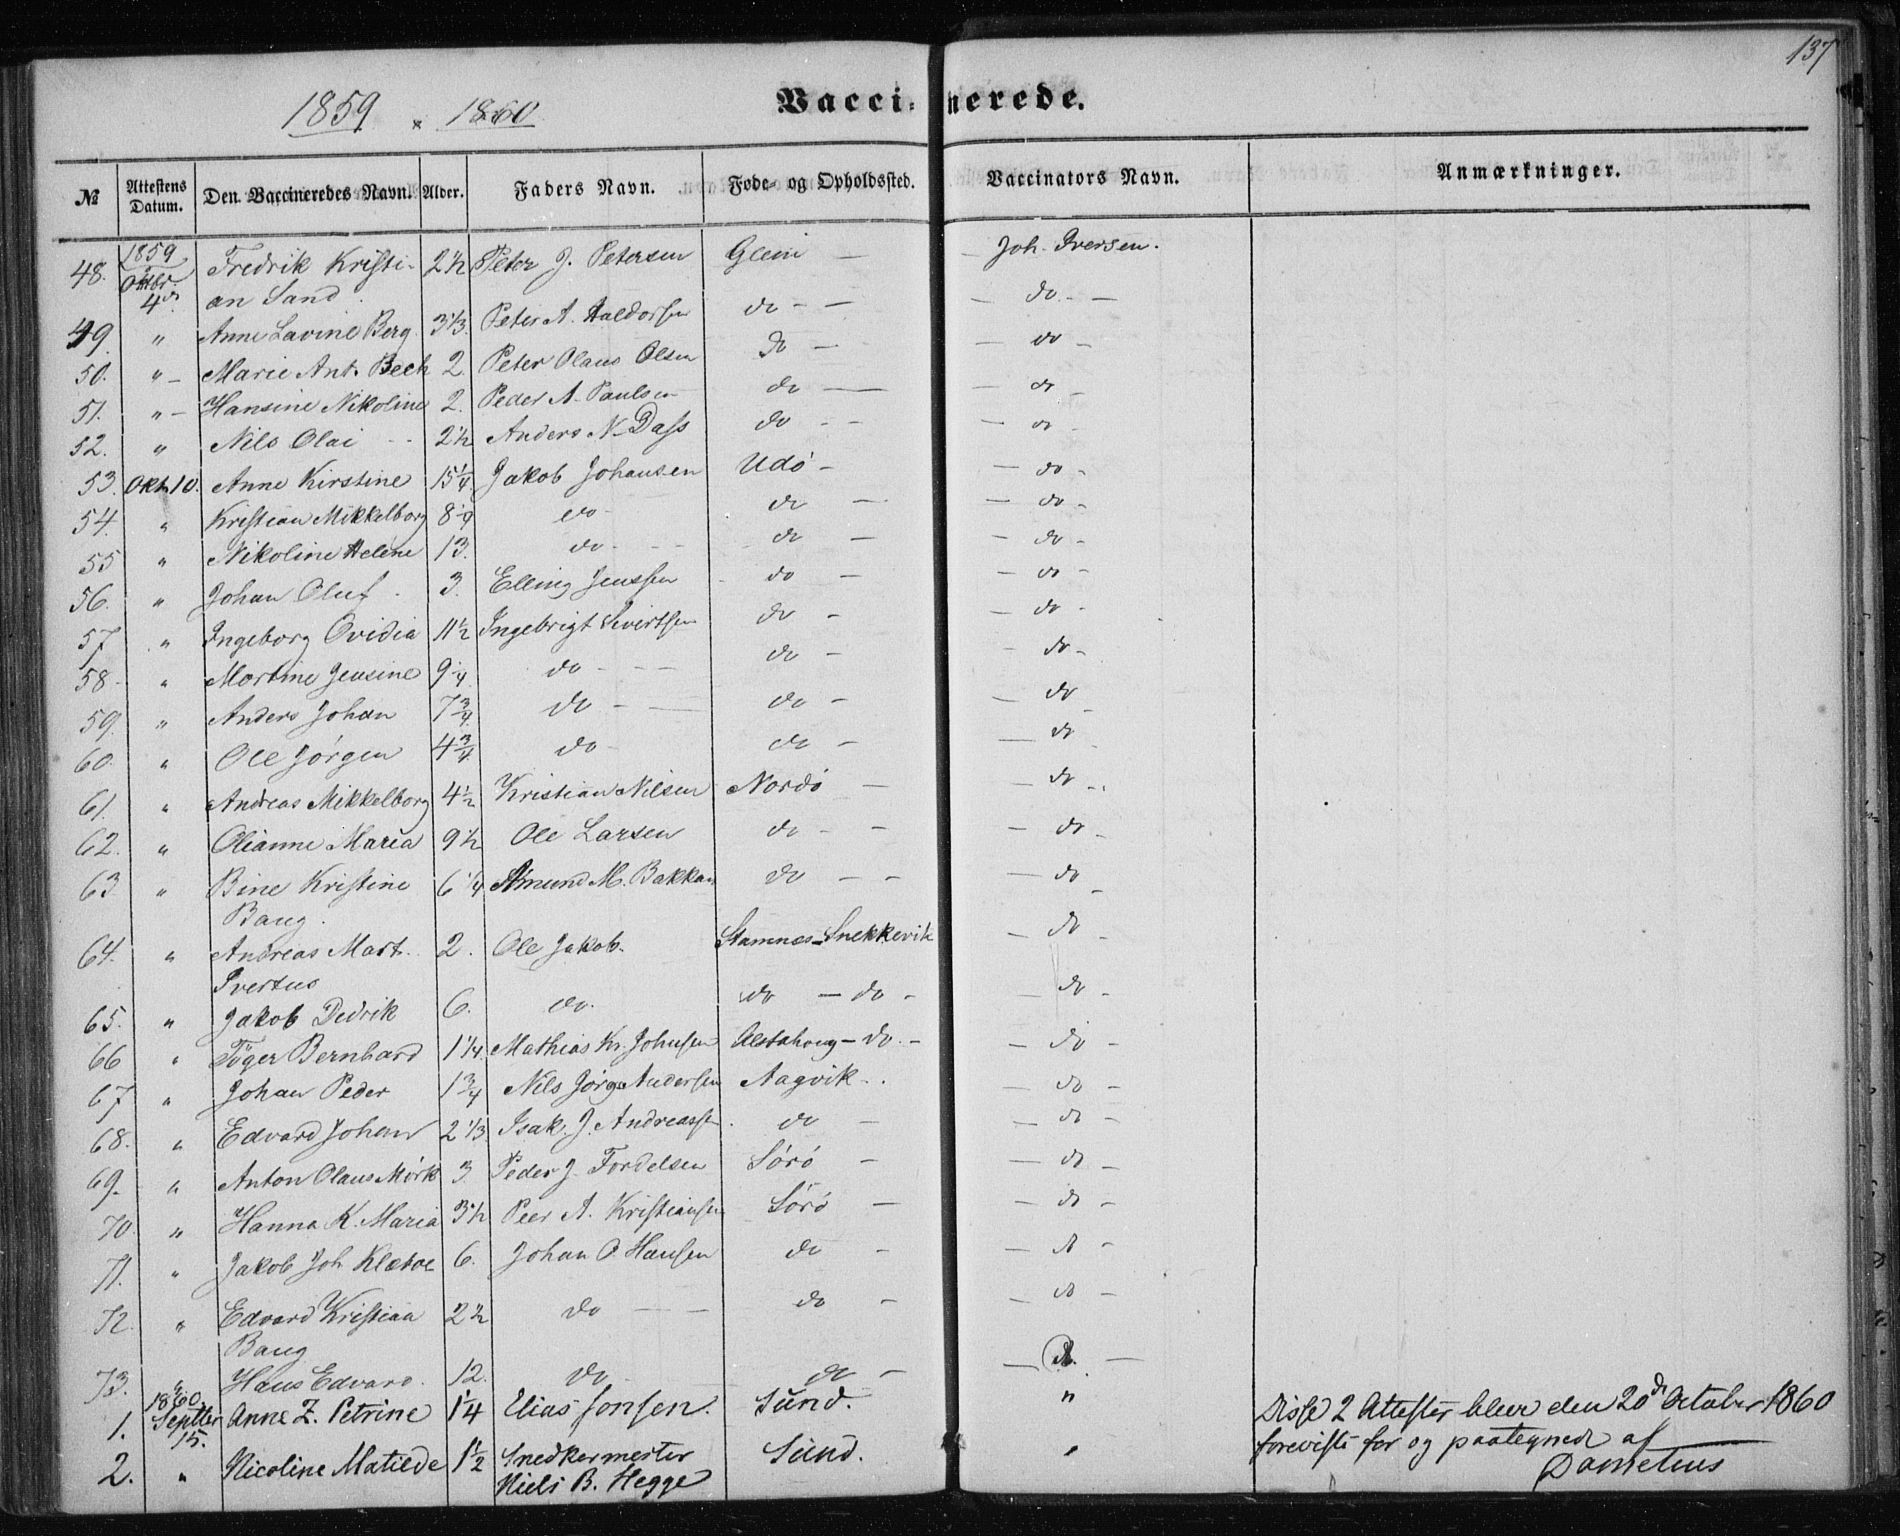 137
1859 " 1860
Vaccinerede.
№ Attestens Datum. Den Vaccineredes Navn. Alder. Faders Navn. Føde- og Opholdssted. Vaccinators Navn. Anmærkninger.
48. 1859 Oktbr. 4de Fredrik Kristi- 2½ Peter J. Petersen Glein — Joh. Iversen.
an Sand
49. " Anne Lavine Berg 3⅓ Peter A. Haldorsen do - — — do - —
50. " - Marie Ant. Bech 2. Peter Olaus Olsen do — — do -
51. " - Hansine Nikoline 2. Peder A. Paulsen do — — do -
52. " Nils Olai - - 2½ Anders N. Dass do - - — do -
53. Okt. 10. Anne Kirstine 15¼ Jakob Johansen Udö - — do -
54. " Kristian Mikkelborg 8¼ do - do — — do -
55 " Nikoline Helene 13. do - - - do — — do -
56. " Johan Oluf - 3. Elling Jenssen do — — do -
57 " Ingeborg Ovidia 11½ Ingebrigt Sivertsen do - — do -
58 - " Martine Jensine 9¼ do - - — do — - do -
59. " Anders Johan 7¾ do - — do - — do
60. " Ole Jörgen 4¾ do - do - — do -
61. " Andreas Mikkelborg 4½ Kristian Nilsen Nordö — — do -
62. " Olianne Maria 9½ Ole Larsen do - - — do -
63 " Bine Kristine 6¼ Amund M. Bakkan do — - — do -
Bang.
64. " Andreas Mart. 2. Ole Jakob. Stamnes-Snekkevik — do -
Ivertus
65. " Jakob Dedrik 6. do. do — do - — do -
66 " Töger Bernhard 1¼ Mathias Kr. Johnsen Alstahoug - do. - — do -
67 " Johan Peder 1¾ Nils Jörg. Andersen Aagvik - . — do -
68. " Edvard Johan 2⅓ Isak. J. Andreassen do — — do -
69. " Anton Olaus Mörk 3 Peder J. Fordelsen Sörö — — do -
70 " Hanna K. Maria 3½ Peer A. Kristiansen Sörö — — do -
71. " Jakob Joh. Klæboe 6. Johan O. Hansen do - — do -
72. " Edvard Kristian 2½ do — — do - — do -
Bang
73. " Hans Edvard. 12. do - do - — do. —
1. 1860 Septbr 15. Anne Z. Petrine 1¼ Elias Jonsen. Sund. " Disse 2 Attester blev den 20de October 1860
2. " Nicoline Matilde 1½ Snedkermester Sund. " foreviste for og paategnede af
Niels B. Hegge